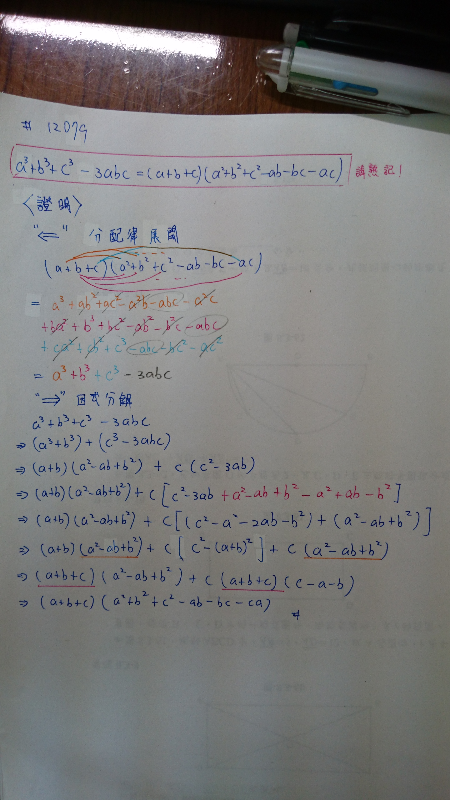 # 12079
a³+b³+c³-3abc=(a+b+c)(a²+b²+c²-ab-bc-ac) 請熟記!
〈證明〉
"⇐" 分配律展開
(a+b+c)(a²+b²+c²-ab-bc-ac)
= a³+ab²+ac²-a²b-abc-a²c
+ba²+b³+bc²-ab²-b²c-abc
+ca²+cb²+c³-abc-bc²-ac²
= a³+b³+c³-3abc
"⇒" 因式分解
a³+b³+c³-3abc
⇒(a³+b³)+(c³-3abc)
⇒(a+b)(a²-ab+b²)+c(c²-3ab)
⇒(a+b)(a²-ab+b²)+c[c²-3ab+a²-ab+b²-a²+ab-b²]
⇒(a+b)(a²-ab+b²)+c[(c²-a²-2ab-b²)+(a²-ab+b²)]
⇒(a+b)(a²-ab+b²)+c[c²-(a+b)²]+c(a²-ab+b²)
⇒(a+b+c)(a²-ab+b²)+c(a+b+c)(c-a-b)
⇒(a+b+c)(a²+b²+c²-ab-bc-ca) #